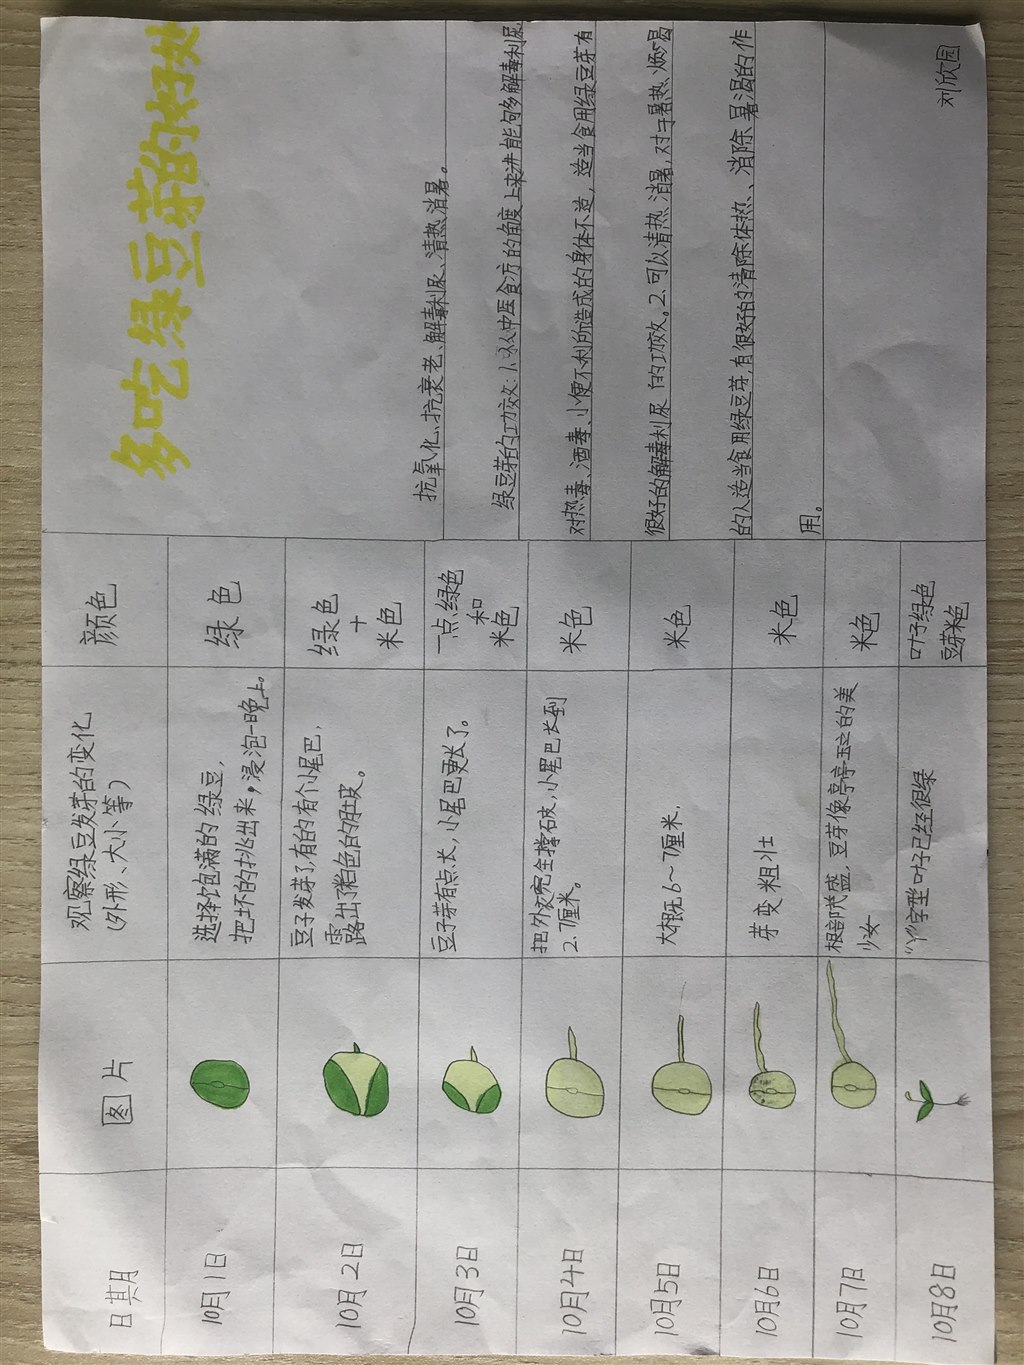 日期
图片
观察绿豆发芽的变化
（外形、大小等）
颜色
10月1日
选择饱满的绿豆，
把坏的挑出来，浸泡一晚上。
绿色
10月2日
豆子发芽了，有的有个小尾巴，
露出了粉色的肚皮。
绿色
+
米色
10月3日
豆子芽有点长，小尾巴更长了。
一点绿色
和
米色
10月4日
把外衣完全撑破，小尾巴长到
2.7厘米。
米色
10月5日
大概6~7厘米.
米色
10月6日
芽变粗壮
米色
10月7日
根部茂盛，豆芽像亭亭玉立的美
少女
米色
10月8日
"丫"字型叶子已经很绿
叶子绿色
豆芽米色
多吃绿豆芽的好处
抗氧化、抗衰老、解毒利尿、清热消暑。
绿豆芽的功效：1.从中医食疗的角度上来讲能够多解毒利尿
对热毒、酒毒、小便不利所造成的身体不适，适当食用绿豆芽有
很好的解毒利尿的功效。2.可以清热消暑，对于暑热、烦渴
的人适当食用绿豆芽，有很好的清除体热、消除暑渴的作
用。
刘欣园